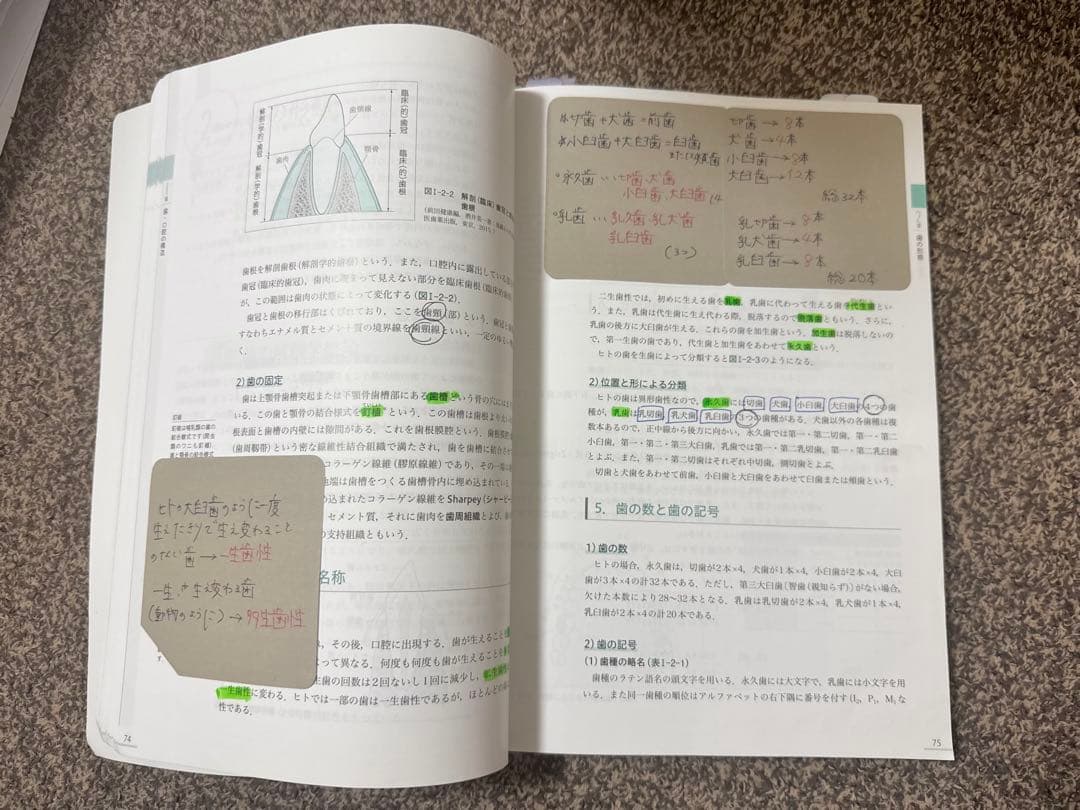 解剖(学的)歯冠
解剖(学的)歯根
歯頸線
歯肉
顎骨
臨床(的)歯冠
臨床(的)歯根
図I-2-2 解剖(臨床)歯冠と
歯根
歯根を解剖歯根(解剖学的歯根)という.また,口腔内に露出している
歯冠(臨床的歯冠),歯肉に埋まって見えない部分を臨床歯根(臨床的
が,この範囲は歯肉の状態によって変化する(図I-2-2).
歯冠と歯根の移行部はくびれており,ここを歯頸(部)という.歯冠と
すなわちエナメル質とセメント質の境界線を歯頸線といい,一定の
く.
2)歯の固定
歯は上顎骨歯槽突起または下顎骨歯槽部にある歯槽という骨の穴に
いる.この歯と顎骨の結合様式を釘植という.この歯槽は歯根より
根表面と歯槽の内壁には隙間がある.これを歯根膜腔という.歯根膜
(歯周靱帯)という密な線維性結合組織で満たされ,歯を歯槽に結合
コラーゲン線維(膠原線維)であり,その一部は
端は歯槽をつくる歯槽骨内に埋められている.
め込まれたコラーゲン線維をSharpey(シャーピー
セメント質,それに歯肉を歯周組織とよび,
の支持組織ともいう.
釘植
ヒトの大臼歯のように一度
生えたきりで生え変わること
のない歯→一生歯性
一生、生え変わる歯
(動物のように)→多生歯性
名称
,その後,口腔に出現する.歯が生えること
よって異なる.何度も何度も歯が生えることを
生歯の回数は2回ないし1回に減少し,
一生歯性に変わる.ヒトでは一部の歯は一生歯性であるが,ほとんどの
性である.
74
切歯+犬歯=前歯
小臼歯+大臼歯=臼歯
または頰歯
永久歯…切歯、犬歯
小臼歯、大臼歯
乳歯…乳切歯、乳犬歯
乳臼歯
(3つ)
切歯→8本
犬歯→4本
小臼歯→8本
大臼歯→12本
総32本
乳切歯→8本
乳犬歯→4本
乳臼歯→8本
総20本
二生歯性では,初めに生える歯を乳歯,乳歯に代わって生える歯を代生歯と
いう.また,乳歯は代生歯に生え代わる際,脱落するので脱落歯ともいう.さらに,
乳歯の後方に大臼歯が生える.これらの歯を加生歯という.加生歯は脱落しないの
で,第一生歯の歯であり,代生歯と加生歯をあわせて永久歯という.
ヒトの歯を生歯によって分類すると図I-2-3のようになる.
2)位置と形による分類
ヒトの歯は異形歯性なので,永久歯には切歯,犬歯,小臼歯,大臼歯の4つの歯
種が,乳歯は乳切歯,乳犬歯,乳臼歯の3つの歯種がある.犬歯以外の各歯種は複
数本あるので,正中線から後方に向かい,永久歯では第一・第二切歯,第一・第二
小臼歯,第一・第二・第三大臼歯,乳歯では第一・第二乳切歯,第一・第二乳臼歯
とよぶ.また,第一・第二切歯はそれぞれ中切歯,側切歯とよぶ.
切歯と犬歯をあわせて前歯,小臼歯と大臼歯をあわせて臼歯または頰歯という.
5.歯の数と歯の記号
1)歯の数
ヒトの場合,永久歯は,切歯が2本×4,犬歯が1本×4,小臼歯が2本×4,大臼
歯が3本×4の計32本である.ただし,第三大臼歯〔智歯(親知らず)〕がない場合,
欠けた本数により28〜32本となる.乳歯は乳切歯が2本×4,乳犬歯が1本×4,
乳臼歯が2本×4の計20本である.
2)歯の記号
(1)歯種の略名(表I-2-1)
歯種のラテン語名の頭文字を用いる.永久歯には大文字で,乳歯には小文字を用
いる.また同一歯種の順位はアルファベットの右下隅に番号を付す(I₂,P₁,M₁な
75